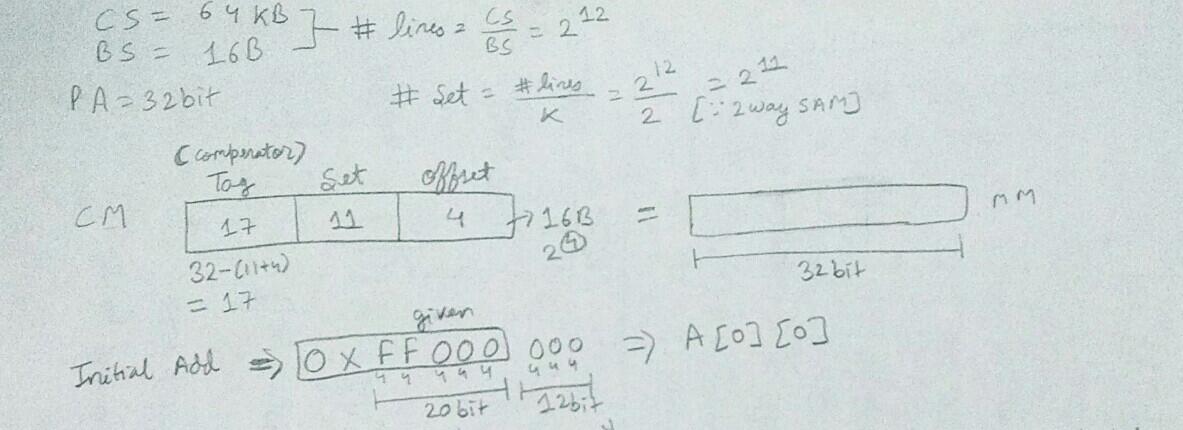 CS = 64 KB
BS = 16B
# lines = CS/BS = 2^12
PA = 32bit
# Set = # lines/K = 2^12/2 = 2^11
[∵ 2way SAM]
(comperator)
Tag Set Offset
CM 17 11 4 → 16B = MM
2^4
32-(11+4)
= 17
32bit
given
Initial Add ⇒ 0XFF000 000 ⇒ A[0][0]
4 4 4 4 4 4 4 4
20bit 12bit